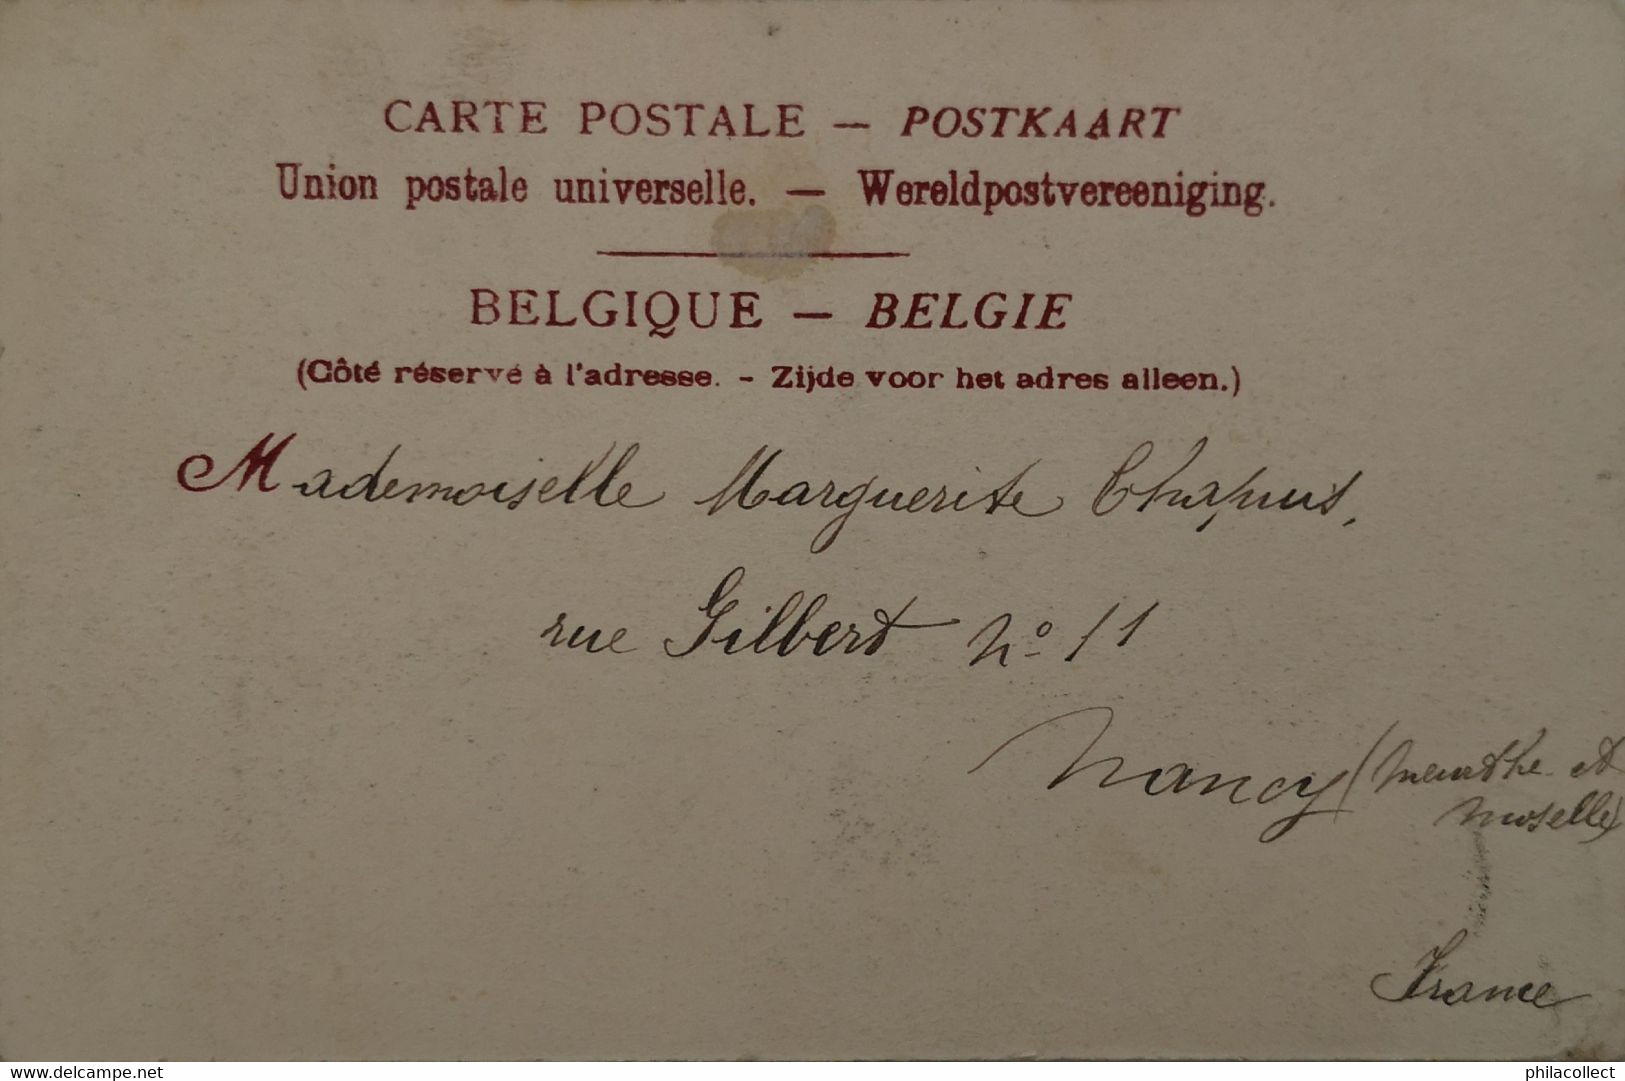 CARTE POSTALE — POSTKAART
Union postale universelle. — Wereldpostvereeniging.
BELGIQUE — BELGIE
(Côté réservé à l'adresse. - Zijde voor het adres alleen.)
Mademoiselle Marguerite Chapuis,
rue Gilbert No 11
Nancy (Meurthe et
Moselle)
France
www.delcampe.net
philacollect